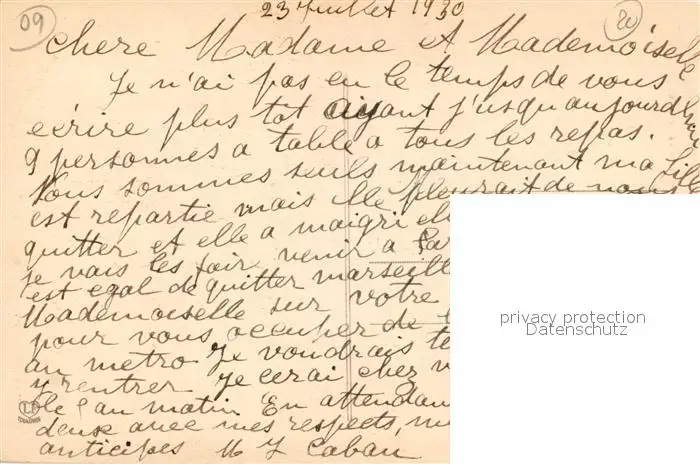 09
23 Juillet 1930
20
chere Madame et Mademoiselle
Je n'ai pas eu le temps de vous
ecrire plus tot ayant jusqu aujourdhui
9 personnes a table a tous les repas.
Nous sommes seuls maintenant ma fille
est repartie mais elle pleurait de nous
quitter et elle a maigri
je vais les fair venir a Par
est egal de quitter marseill
Mademoiselle sur votre
pour vous occuper de
au metro Je voudrais
y rentrer Je cerai chez
le 1 au matin En attendan
deux avec mes respects,
anticipes M J Caban
privacy protection
Datenschutz